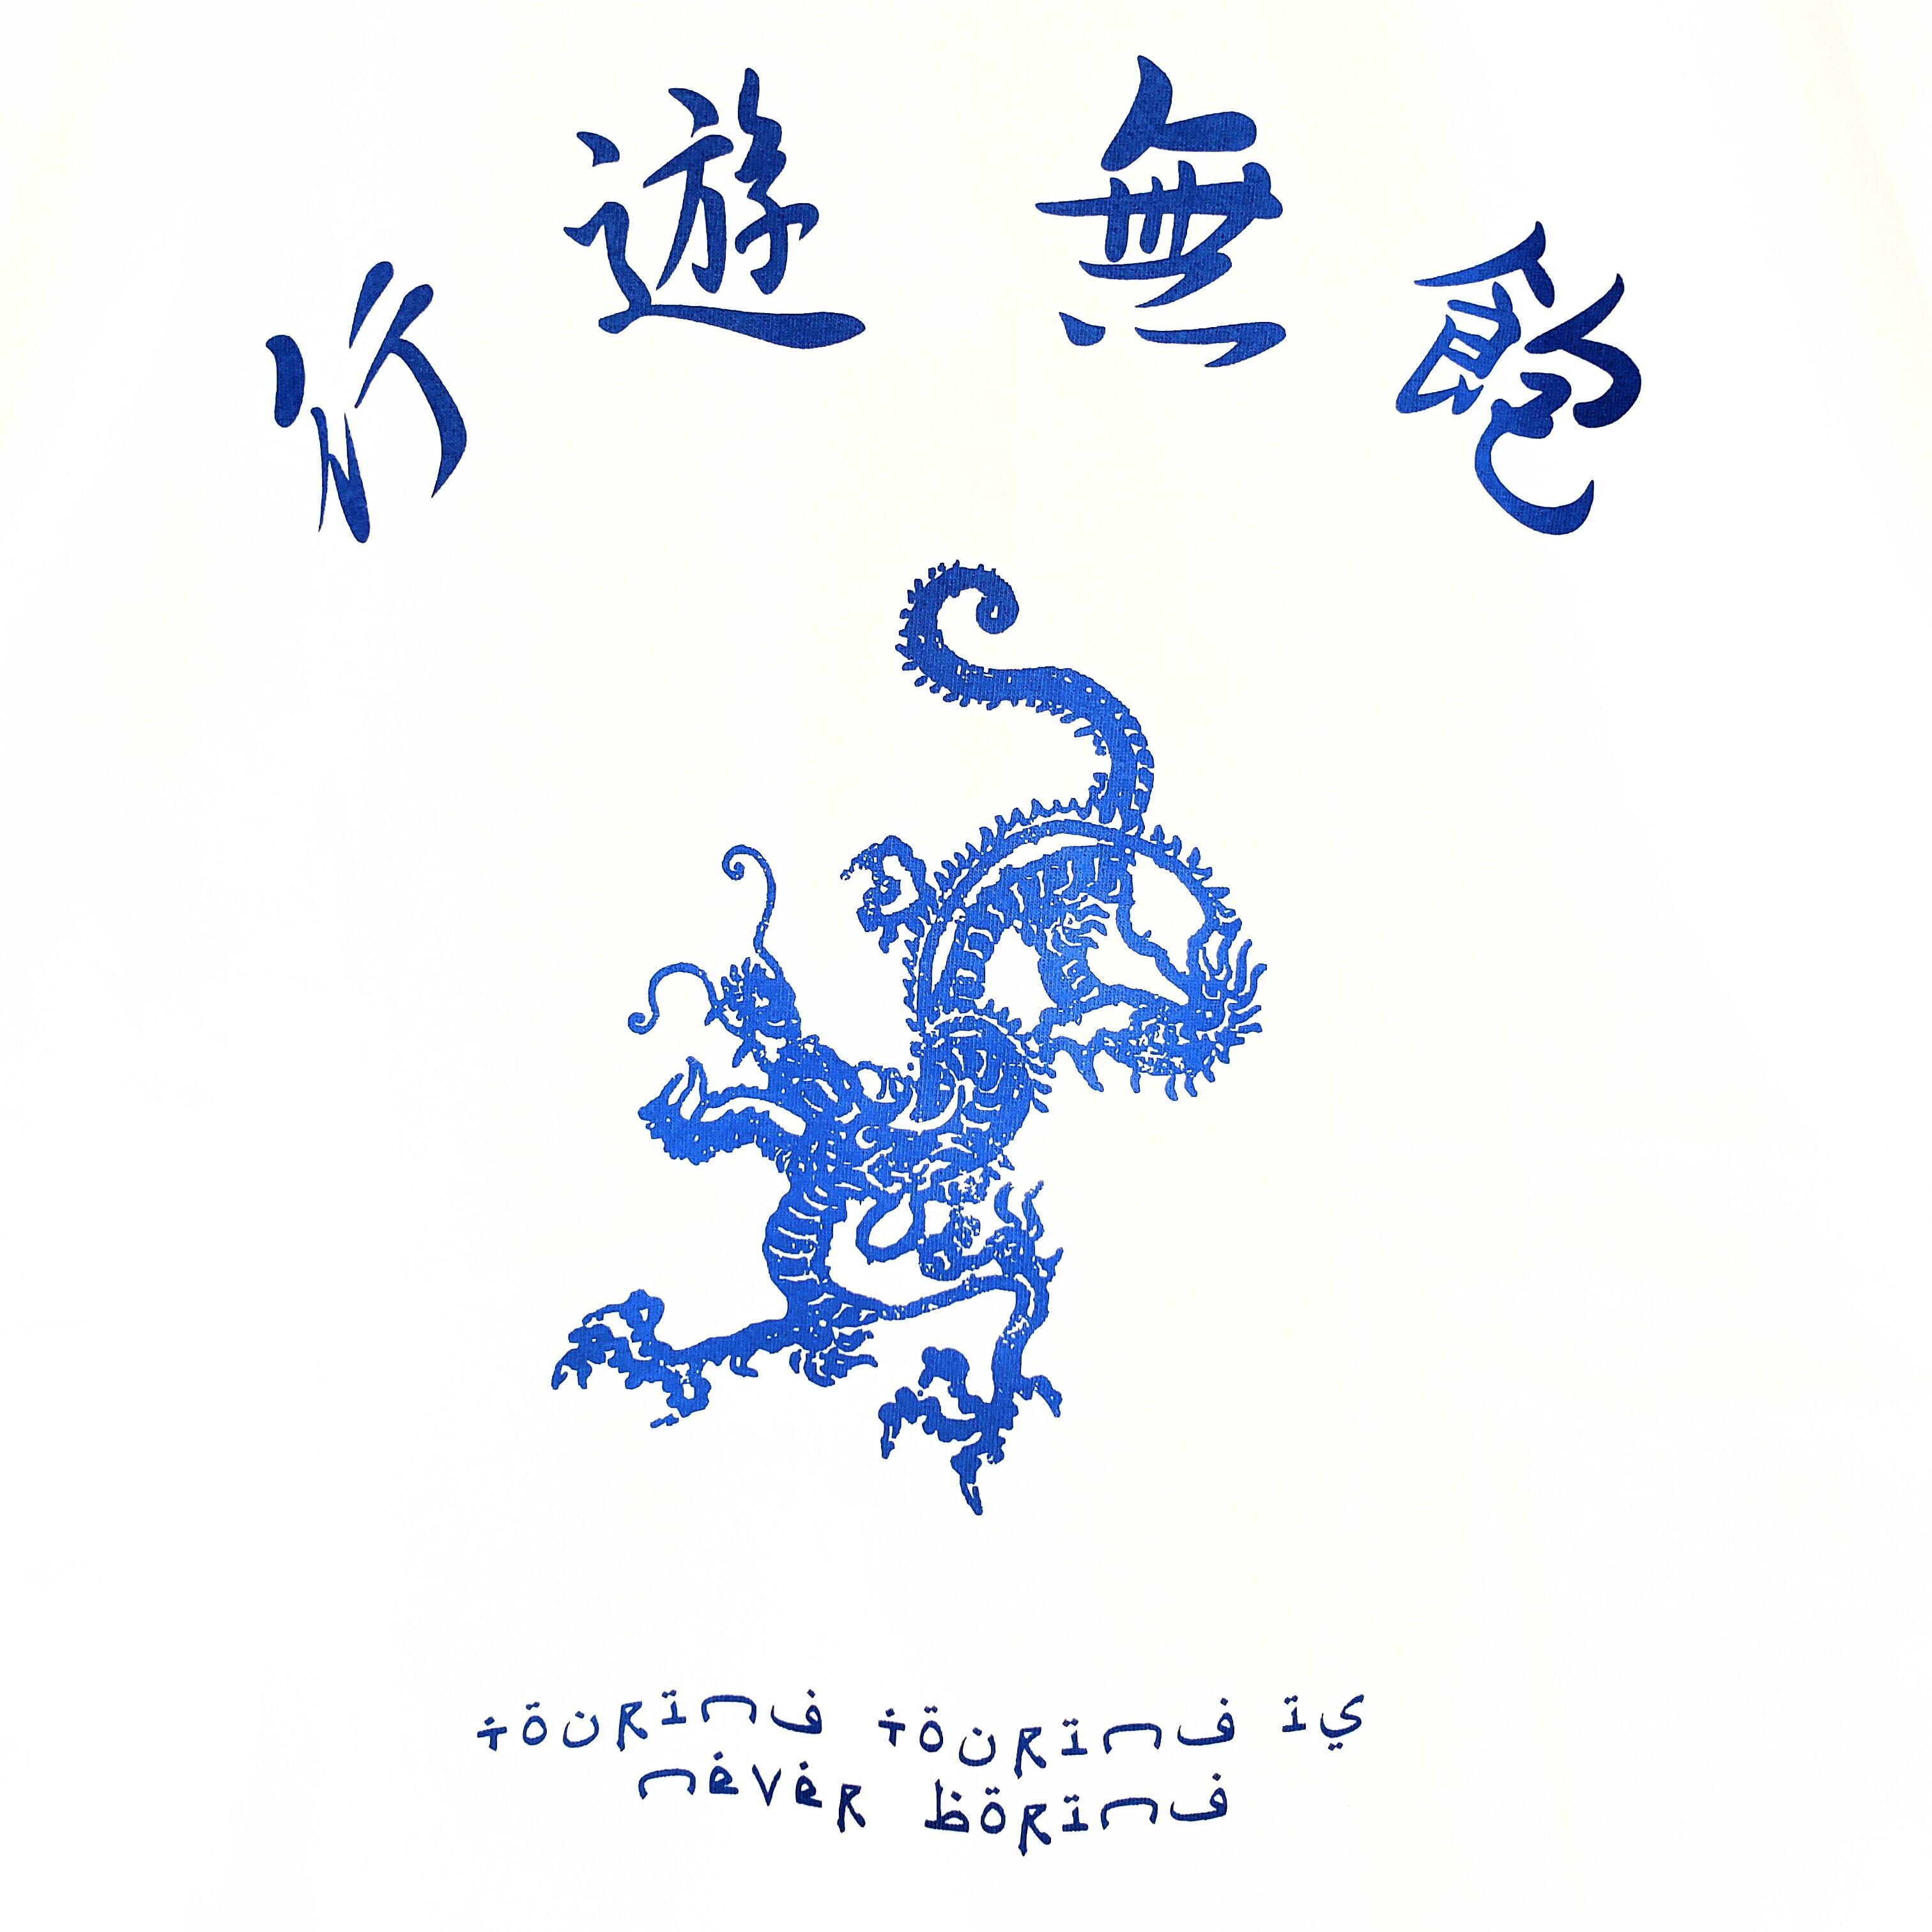 行遊無飽
touring touring is
never boring